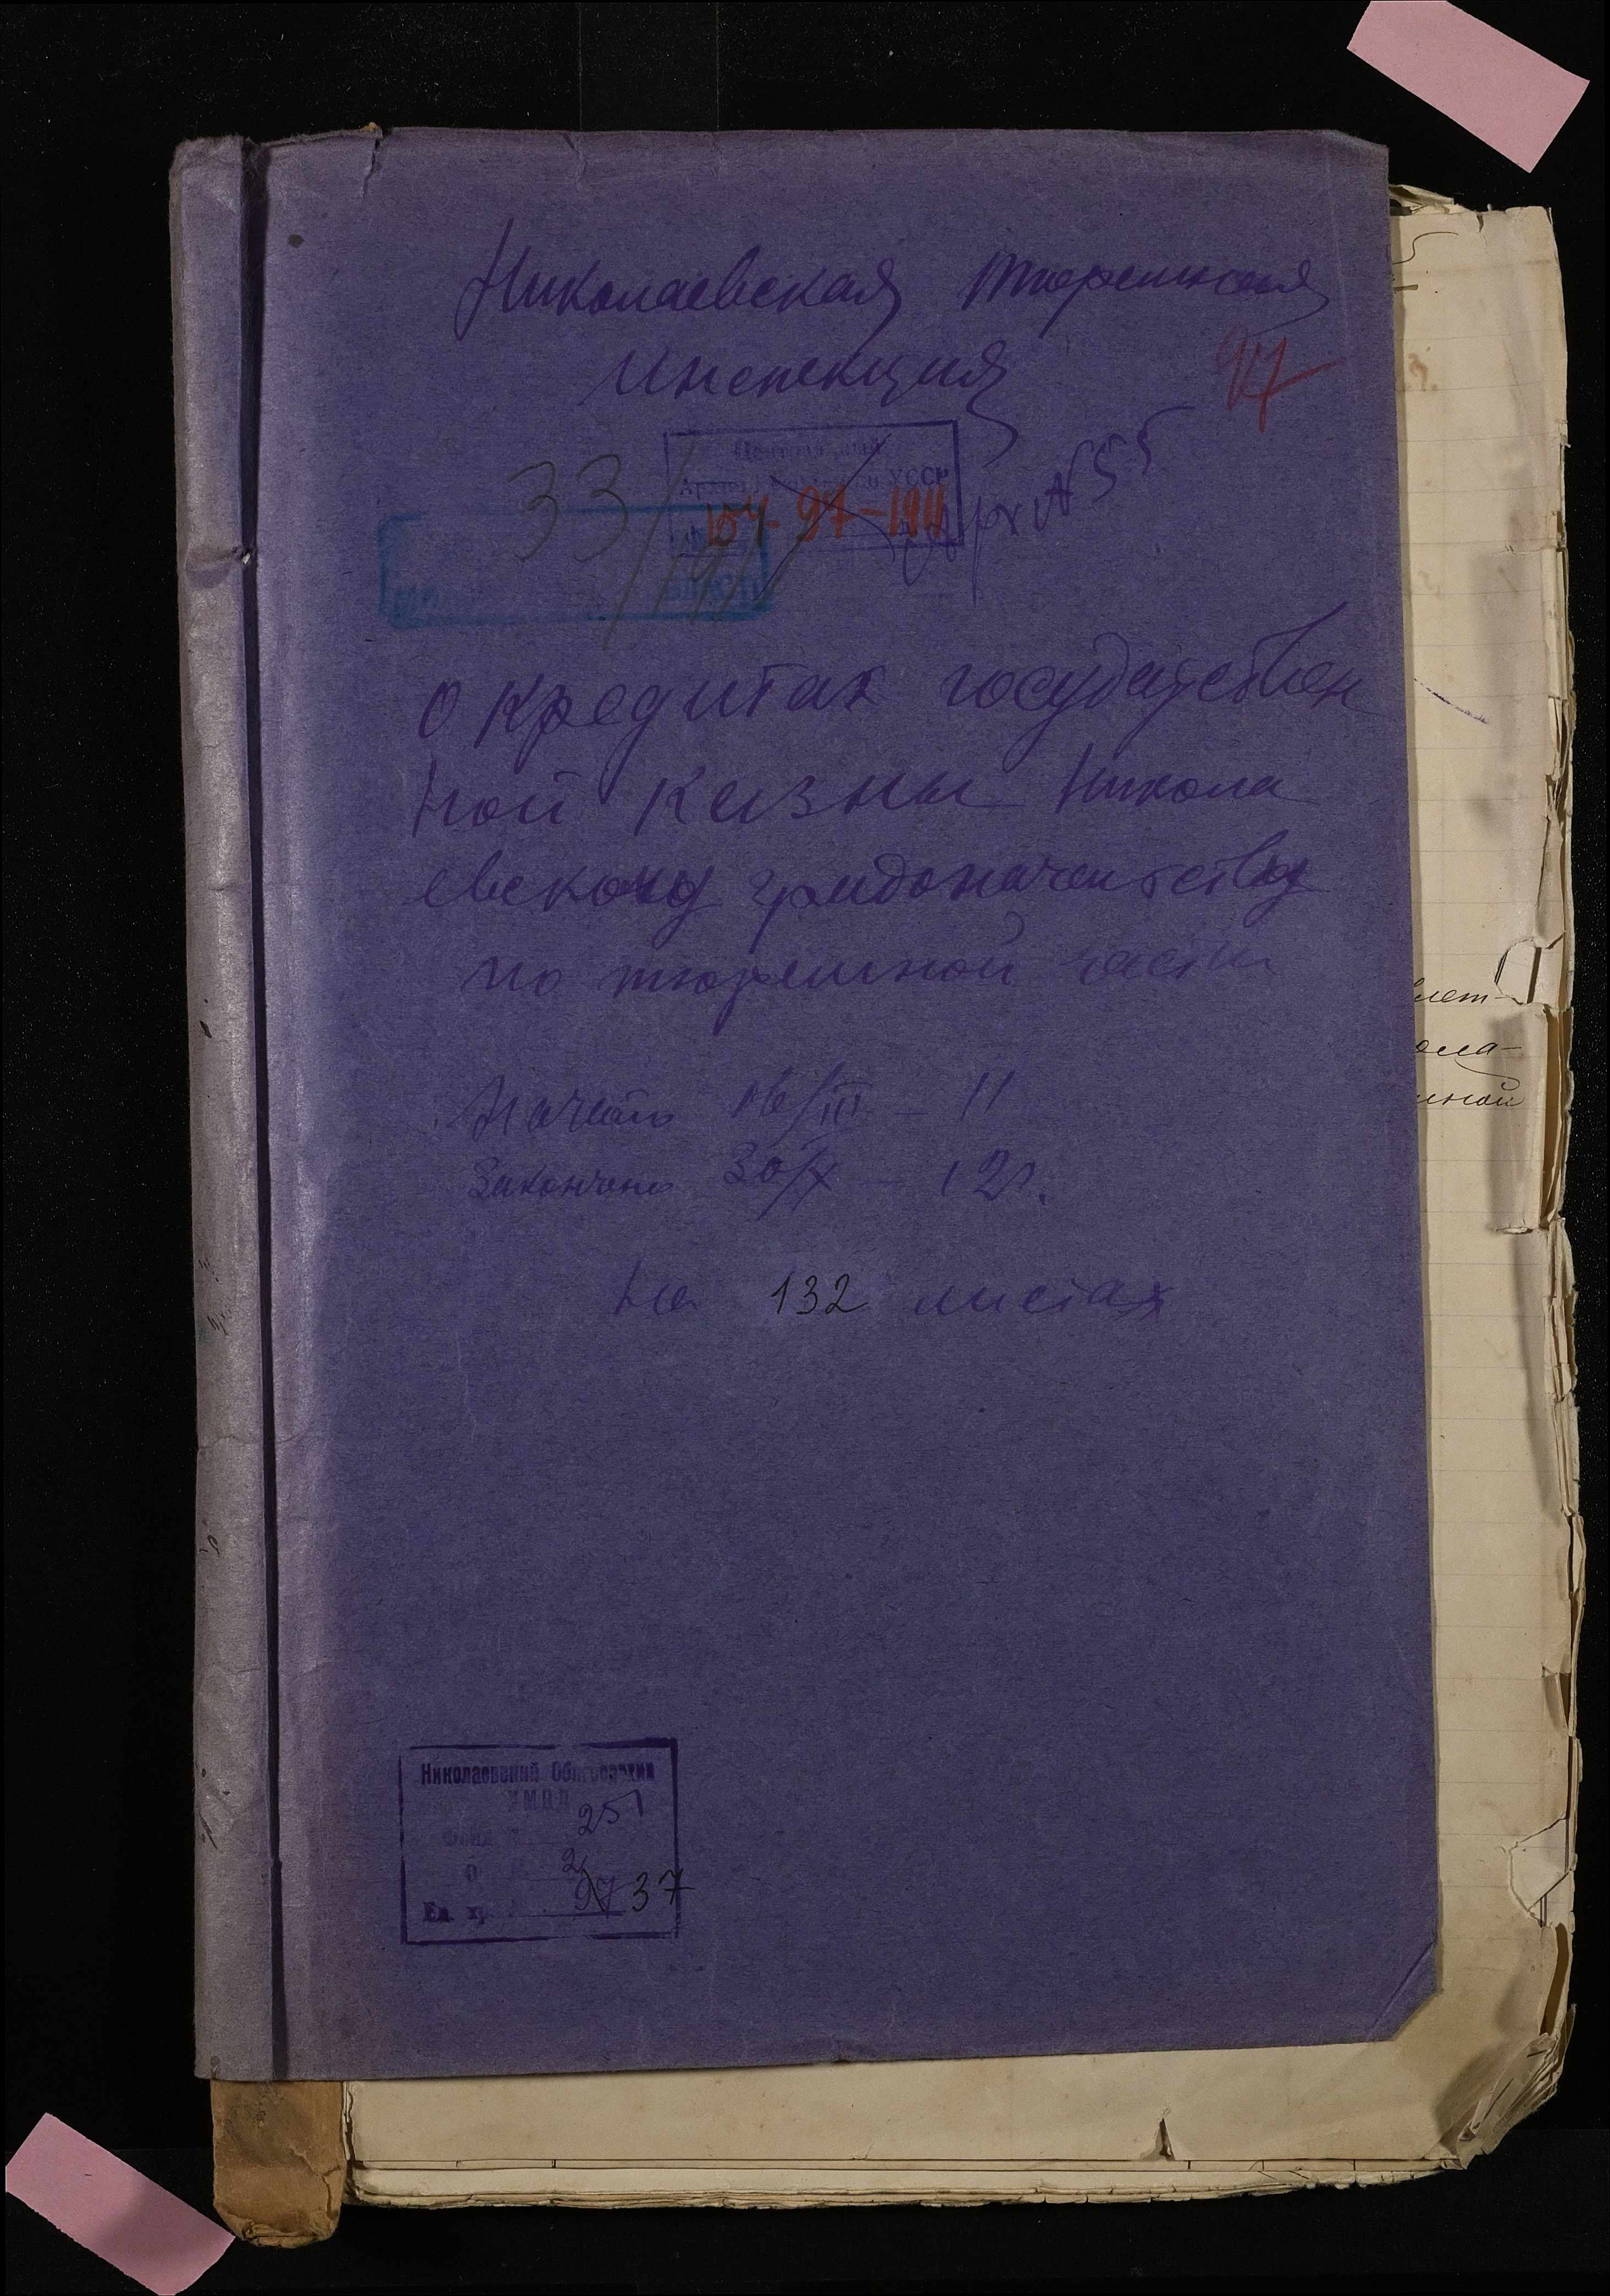 Николаевская Тюремная
инспекция
97
УССР
104-97-1911
№ 55
33
о кредитах государствен
ной казны Никола
евскому градоначальству
по тюремной части
Начато 16/III - 11
Закончено 30/X - 12г.
На 132 листах
Николаевский Облгосархив
УМВД
Фонд 251
О 2
Ед. хр. 97 37
лет-
ола-
мной